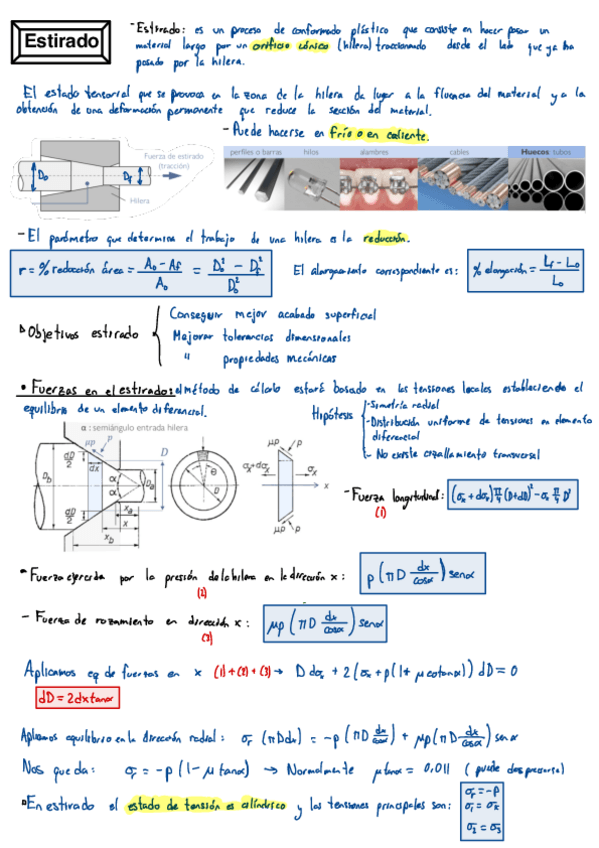 Estirado
- Estirado: es un proceso de conformado plástico que consiste en hacer pasar un
material largo por un orificio cónico (hilera) traccionando desde el lado que ya ha
pasado por la hilera.
El estado tensorial que se provoca en la zona de la hilera da lugar a la fluencia del material y a la
obtención de una deformación permanente que reduce la sección del material.
- Puede hacerse en frío o en caliente.
Fuerza de estirado
(tracción)
D₀
Df
Hilera
perfiles o barras hilos alambres cables Huecos: tubos
- El parámetro que determina el trabajo de una hilera es la reducción.
r = % reducción área = (A₀ - Af) / A₀ = (D₀² - Df²) / D₀²
El alargamiento correspondiente es: % elongación = (Lf - L₀) / L₀
Objetivos estirado
Conseguir mejor acabado superficial
Mejorar tolerancias dimensionales
" propiedades mecánicas
• Fuerzas en el estirado: el método de cálculo estará basado en las tensiones locales estableciendo el
equilibrio de un elemento diferencial.
Hipótesis
- Simetría radial
- Distribución uniforme de tensiones en elemento
diferencial
- No existe cizallamiento transversal
α : semiángulo entrada hilera
μp p
dD/2 dx D
Db α α Da
dD/2 xa
x
xb
θ D
μp p
σx+dσx σx x
μp p
- Fuerza longitudinal: (σx + dσx) π/4 (D+dD)² - σx π/4 D²
(1)
- Fuerza ejercida por la presión de la hilera en la dirección x: p (πD dx/cosα) senα
(2)
- Fuerza de rozamiento en dirección x: μp (πD dx/cosα) senα
(3)
Aplicamos eq de fuerzas en x (1)+(2)+(3) → D dσx + 2(σx + p(1+ μ cotanα)) dD = 0
dD = 2dx tanα
Aplicamos equilibrio en la dirección radial: σr (πDdx) = -p (πD dx/cosα) + μp (πD dx/cosα) senα
Nos queda: σr = -p (1- μ tanα) → Normalmente μ tanα = 0,011 (puede despreciarse)
En estirado el estado de tensión es cilíndrico y las tensiones principales son:
σr = -p
σ1 = σx
σ2 = σ3